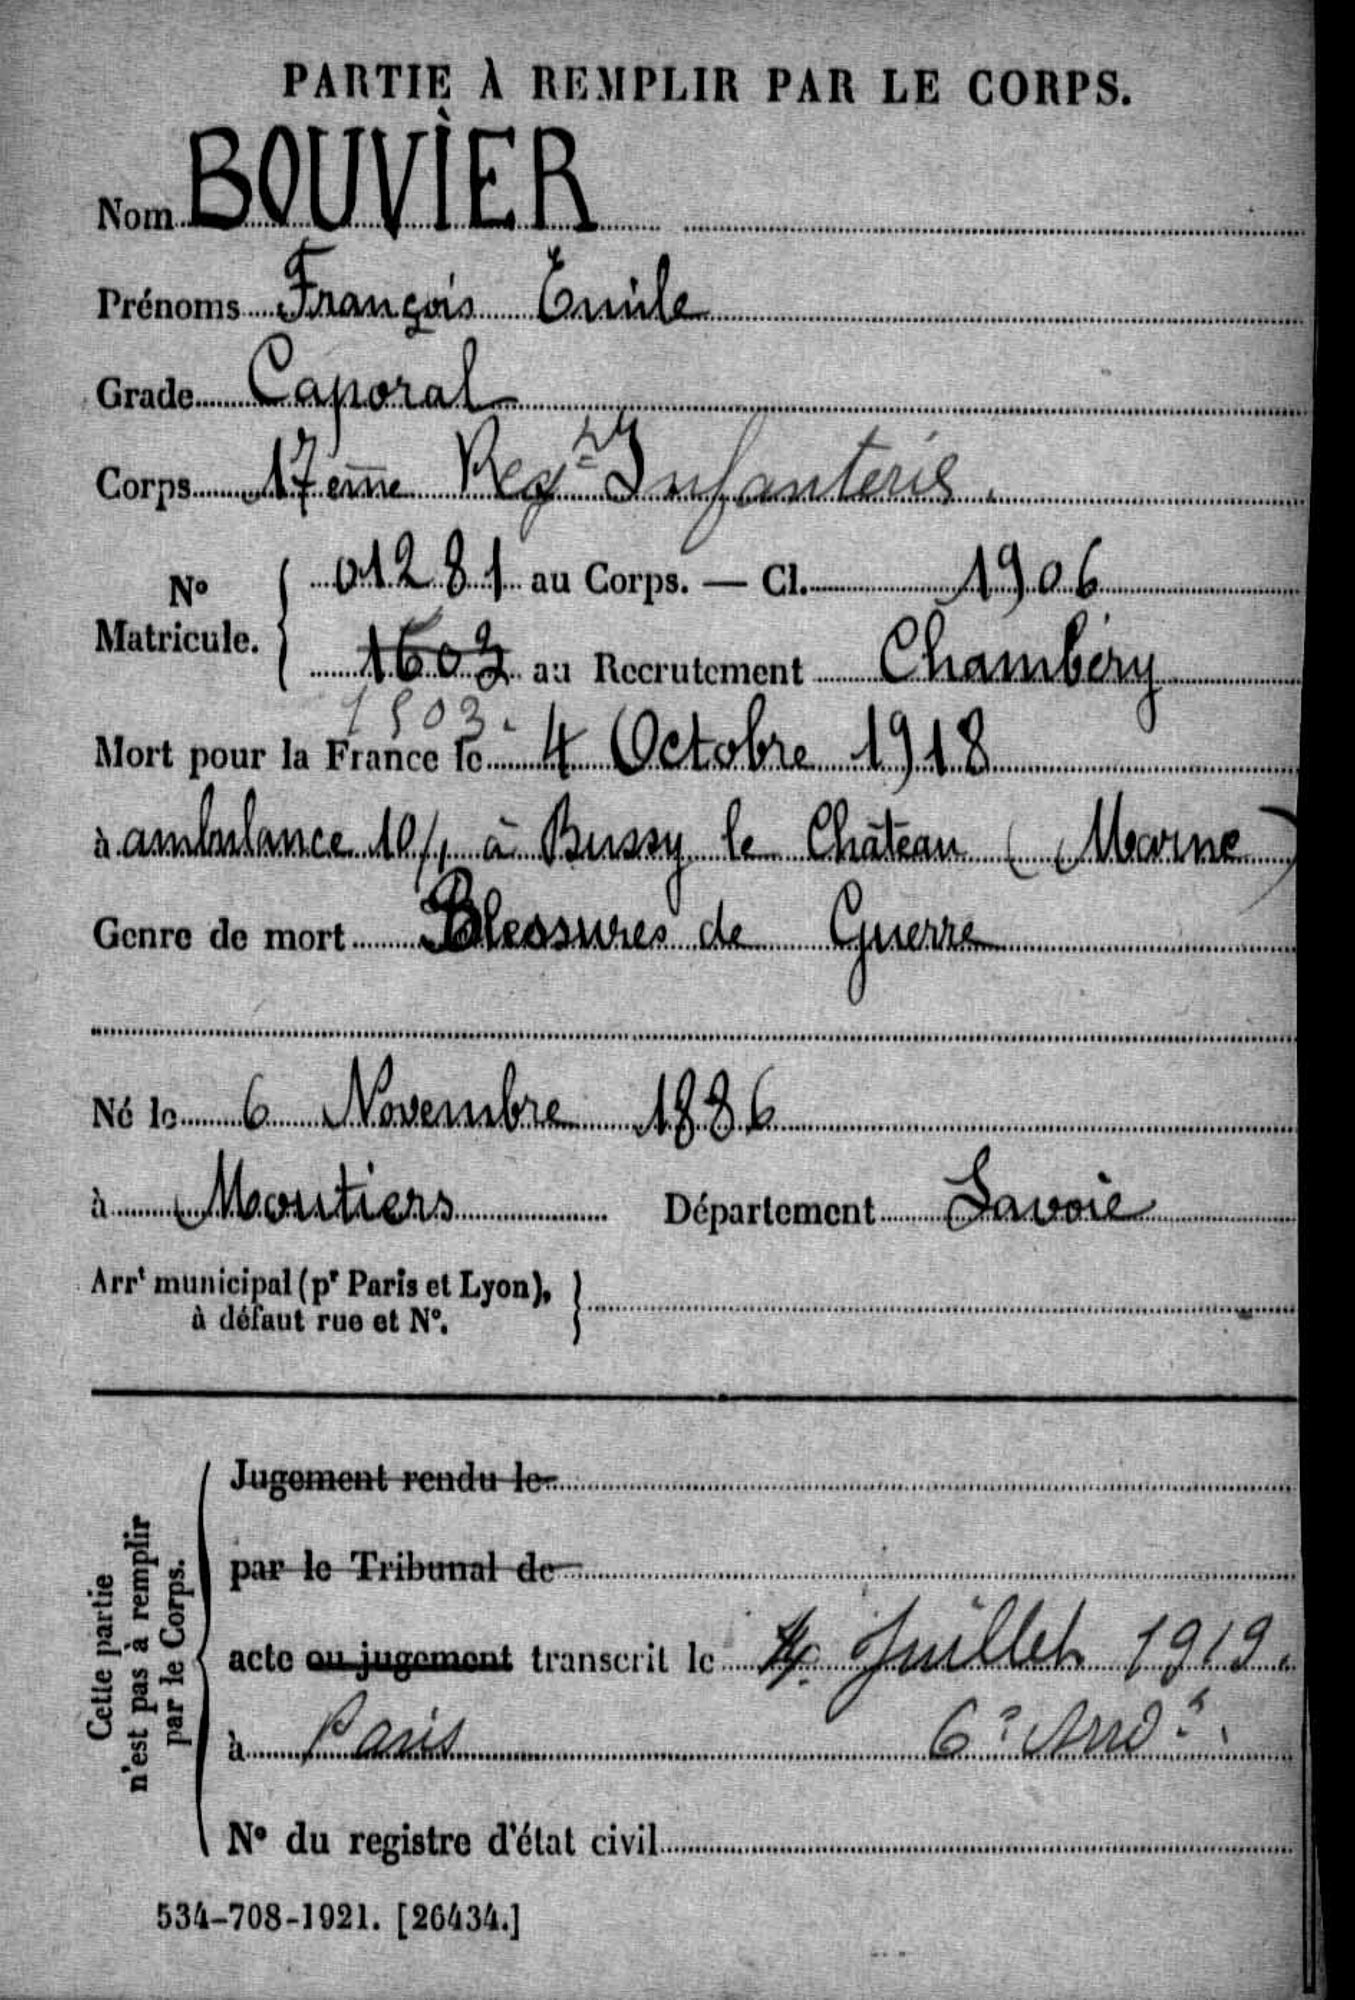 PARTIE À REMPLIR PAR LE CORPS.
Nom BOUVIER
Prénoms François Emile
Grade Caporal
Corps 17ème Regt Infanterie.
No Matricule. { 01281 au Corps. — Cl. 1906
1603 au Recrutement Chambéry
1503.
Mort pour la France le 4 Octobre 1918
à ambulance 10/1 à Bussy le Château (Marne)
Genre de mort Blessures de Guerre
Né le 6 Novembre 1886
à Moutiers Département Savoie
Arrt municipal (pr Paris et Lyon),
à défaut rue et No.
Cette partie
n'est pas à remplir
par le Corps.
Jugement rendu le
par le Tribunal de
acte ou jugement transcrit le 4. Juillet 1919.
à Paris 6e Arrdt.
No du registre d'état civil
534-708-1921. [26434.]